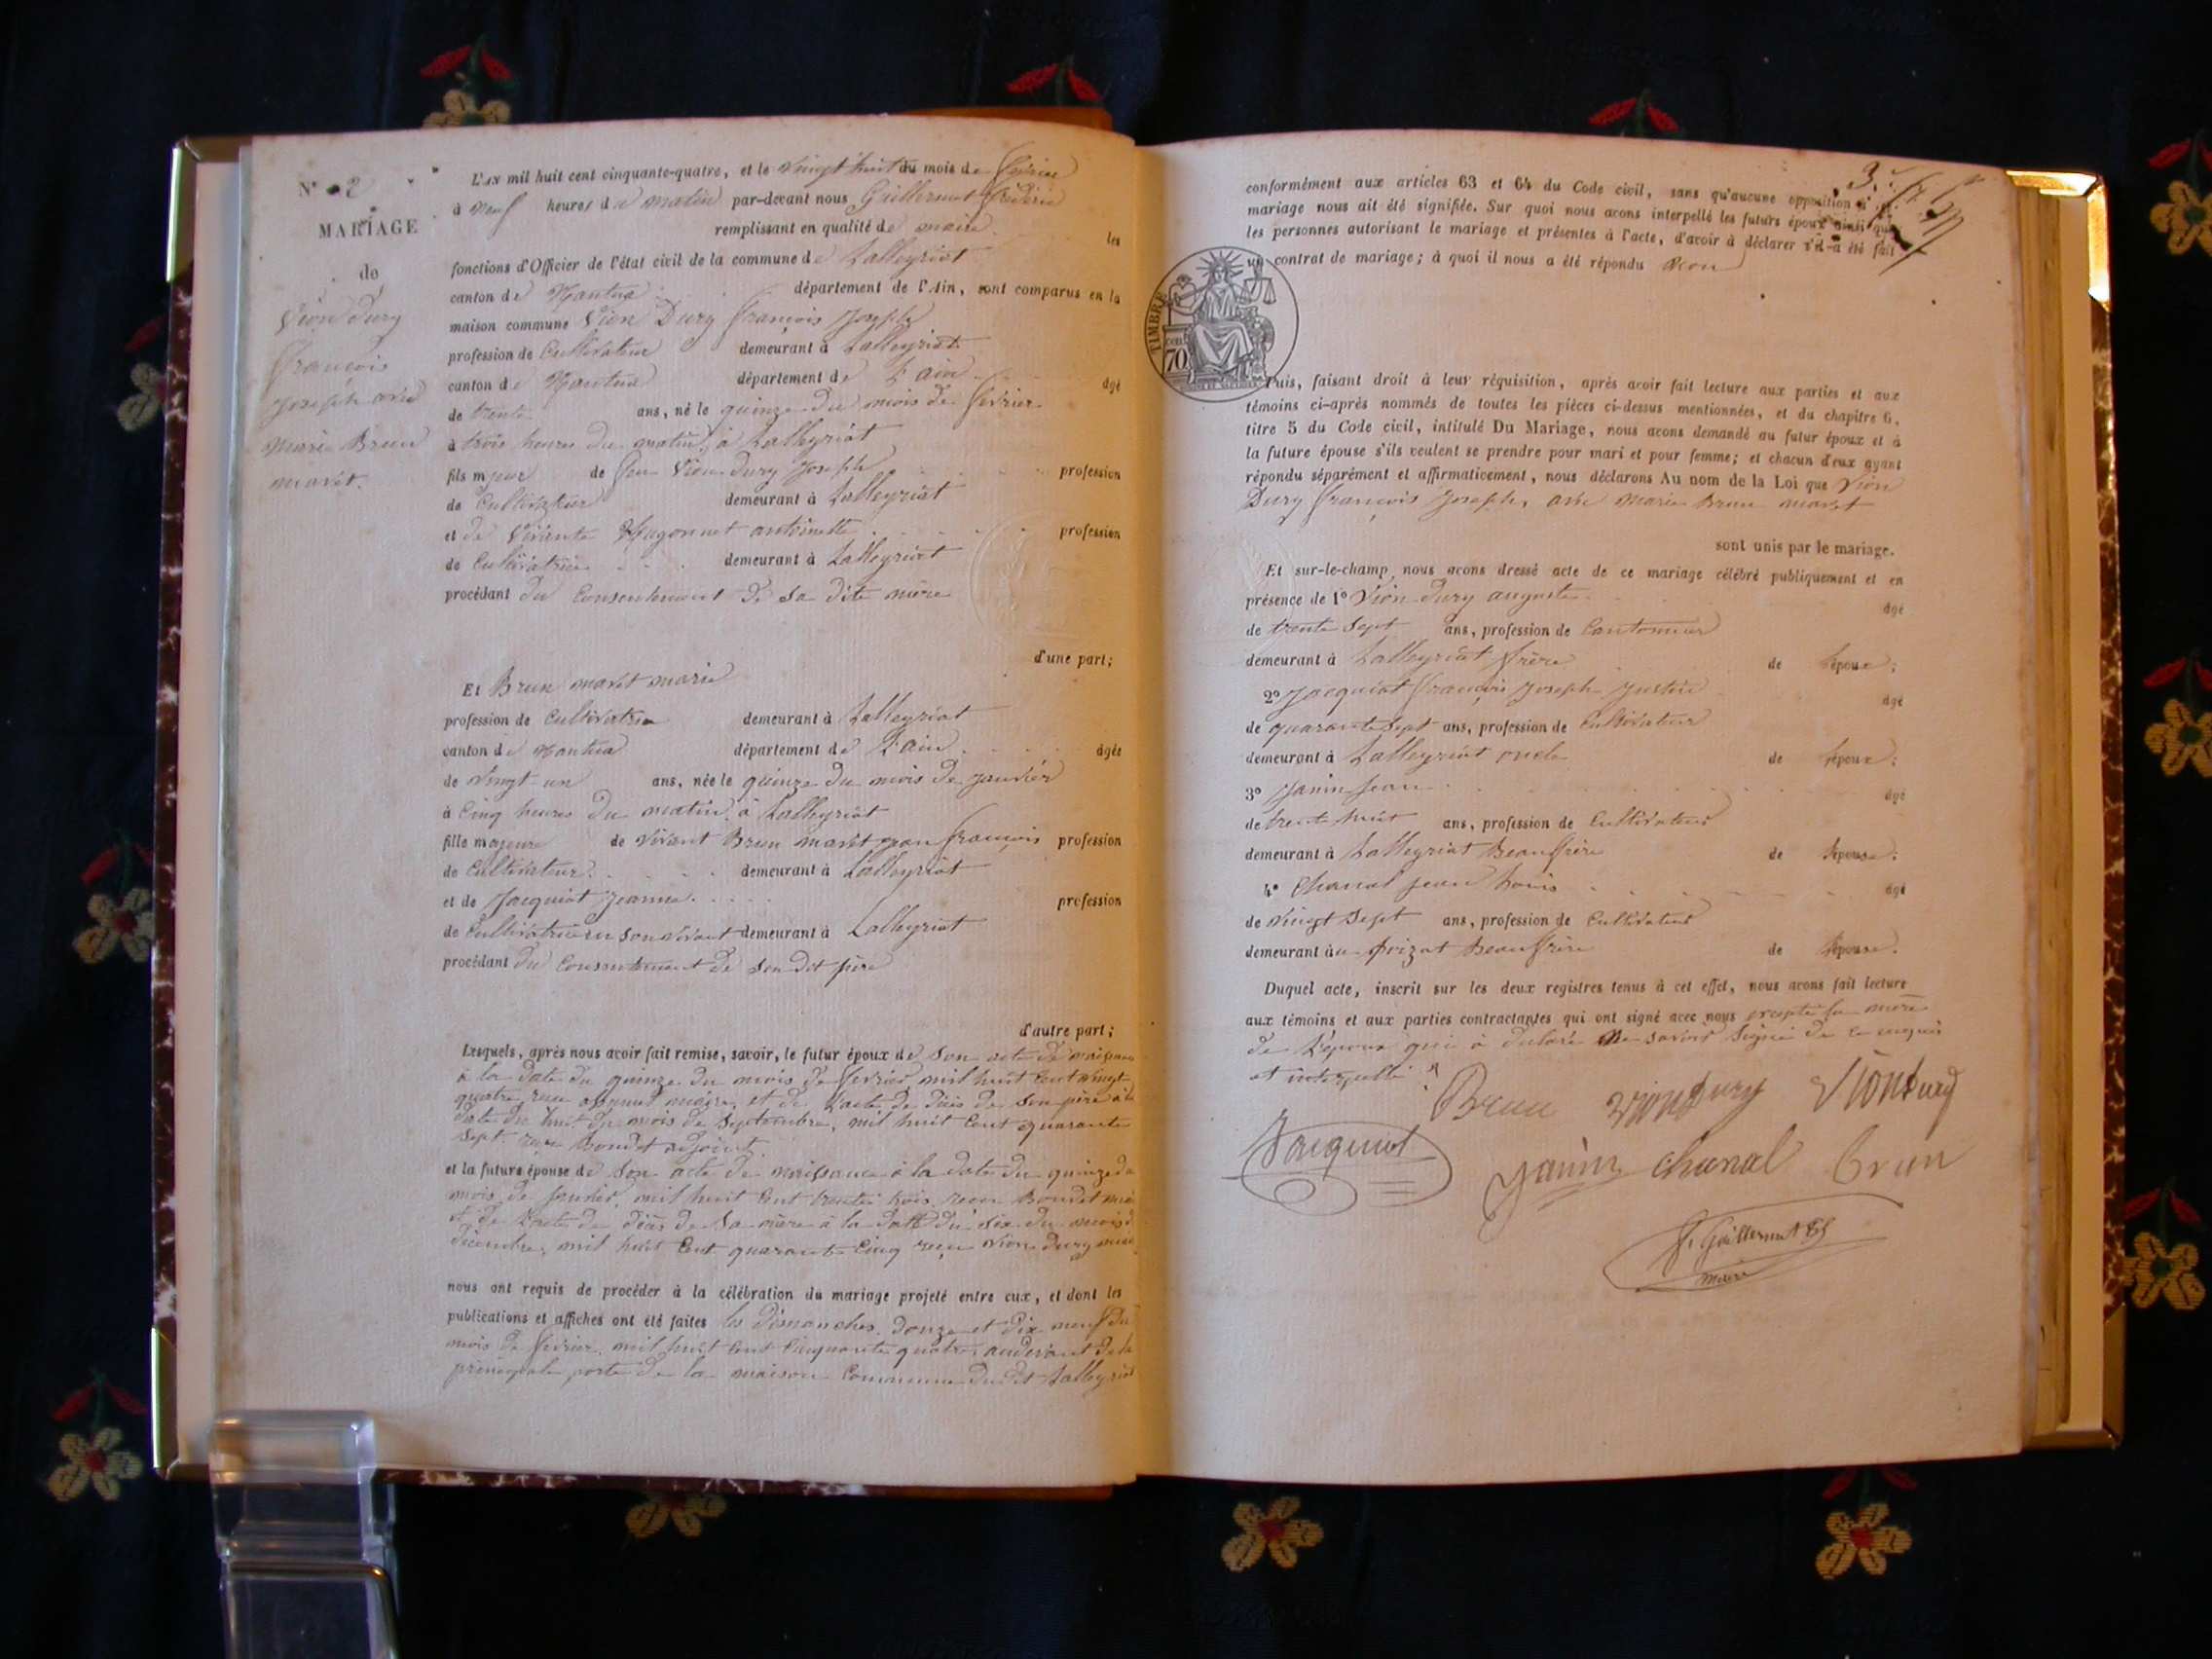 N° 2
MARIAGE
de
Vion Dury
François
Joseph avec
Marie Brun
marêt.
L'AN mil huit cent cinquante-quatre, et le vingt huit du mois de février
à neuf heures du matin par-devant nous Guillermet Frédéric
remplissant en qualité de maire les
fonctions d'Officier de l'état civil de la commune de Lalleyriat
canton de Nantua département de l'Ain, sont comparus en la
maison commune Vion Dury françois Joseph
profession de Cultivateur demeurant à Lalleyriat
canton de Nantua département de l'ain âgé
de trente ans, né le quinze du mois de février
à trois heures du matin, à Lalleyriat
fils majeur de feu Vion Dury Joseph profession
de Cultivateur demeurant à Lalleyriat
et de Vivante Hugonnet antoinette profession
de Cultivatrice demeurant à Lalleyriat
procédant du Consentement de sa dite mère
d'une part;
Et Brun marêt marie
profession de Cultivatrice demeurant à Lalleyriat
canton de Nantua département de l'ain âgée
de vingt un ans, née le quinze du mois de janvier
à Cinq heures du matin, à Lalleyriat
fille majeure de vivant Brun marêt jean françois profession
de Cultivateur demeurant à Lalleyriat
et de Jacquiot Jeanne profession
de Cultivatrice en son vivant demeurant à Lalleyriat
procédant du Consentement de son dit père
d'autre part;
Lesquels, après nous avoir fait remise, savoir, le futur époux de son acte de naissance
à la date du quinze du mois de fevrier mil huit Cent vingt
quatre, reçu maire, et de l'acte de décès de son père à la
date du huit du mois de Septembre, mil huit Cent quarante
sept reçu Bondet adjoint.
et la future épouse de son acte de naissance à la date du quinze du
mois de janvier, mil huit Cent trente trois reçu Bondet maire
et de l'acte de décès de sa mère à la date du six du mois de
décembre, mil huit Cent quarante Cinq reçu Vion Dury maire
nous ont requis de procéder à la célébration du mariage projeté entre eux, et dont les
publications et affiches ont été faites les Dimanches douze et dix neuf du
mois de février, mil huit Cent Cinquante quatre audevant de la
principale porte de la maison Commune dudit Lalleyriat
conformément aux articles 63 et 64 du Code civil, sans qu'aucune opposition à
mariage nous ait été signifiée. Sur quoi nous avons interpellé les futurs époux ainsi que
les personnes autorisant le mariage et présentes à l'acte, d'avoir à déclarer s'il a été fait
un contrat de mariage; à quoi il nous a été répondu non
TIMBRE
70 cen
Puis, faisant droit à leur réquisition, après avoir fait lecture aux parties et aux
témoins ci-après nommés de toutes les pièces ci-dessus mentionnées, et du chapitre 6,
titre 5 du Code civil, intitulé Du Mariage, nous avons demandé au futur époux et à
la future épouse s'ils veulent se prendre pour mari et pour femme; et chacun d'eux ayant
répondu séparément et affirmativement, nous déclarons Au nom de la Loi que Vion
Dury françois Joseph, avec Marie Brun marêt
sont unis par le mariage.
Et sur-le-champ nous avons dressé acte de ce mariage célébré publiquement et en
présence de 1° Vion Dury auguste âgé
de trente sept ans, profession de Cantonnier
demeurant à Lalleyriat frère de l'époux;
2° Jacquiot françois Joseph Justin âgé
de quarante sept ans, profession de Cultivateur
demeurant à Lalleyriat oncle de l'époux;
3° Janin Jean âgé
de trente huit ans, profession de Cultivateur
demeurant à Lalleyriat Beau frère de l'épouse;
4° Chanal Jean Louis âgé
de vingt Sept ans, profession de Cultivateur
demeurant au poizat Beau frère de l'épouse.
Duquel acte, inscrit sur les deux registres tenus à cet effet, nous avons fait lecture
aux témoins et aux parties contractantes qui ont signé avec nous excepté la mère
de l'époux qui à déclaré ne savoir signé de ce enquis
et interpellé
Brun Vion Dury Vion Dury
Jacquiot Janin Chanal Brun
Guillermet
maire